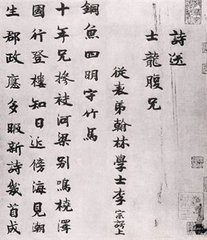 詩送
士龍腹兄
從表弟翰林學士李宗諤上
銅魚四明守竹馬
十年兄摻袂河梁别鳴橈澤
國行登樓知日近傍海見潮
生郡政應多暇新詩幾首成